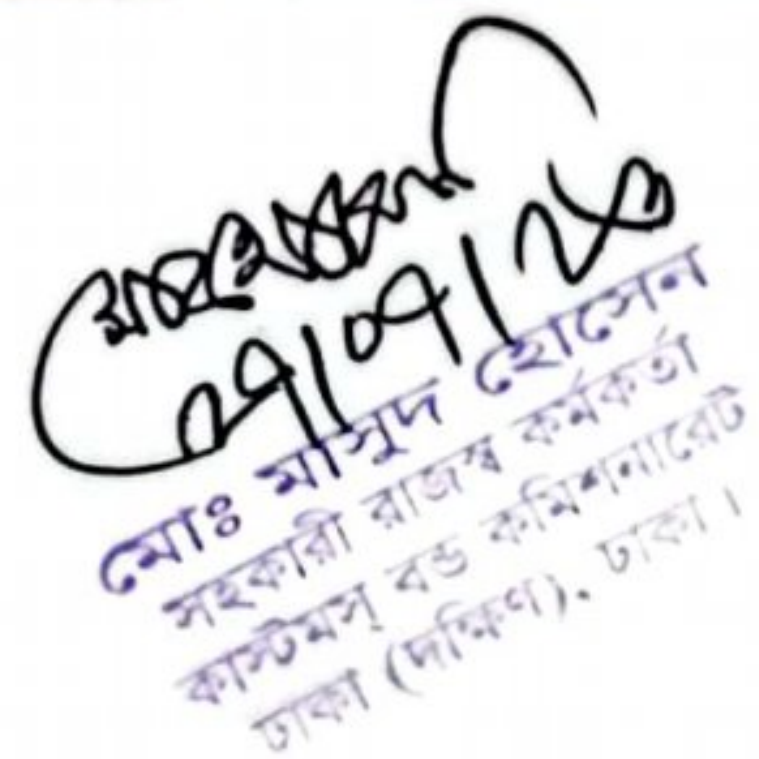 ২৭/০৭/২৬
মোঃ মাসুদ হোসেন
সহকারী রাজস্ব কর্মকর্তা
কাস্টমস্ বন্ড কমিশনারেট
ঢাকা (দক্ষিণ), ঢাকা।